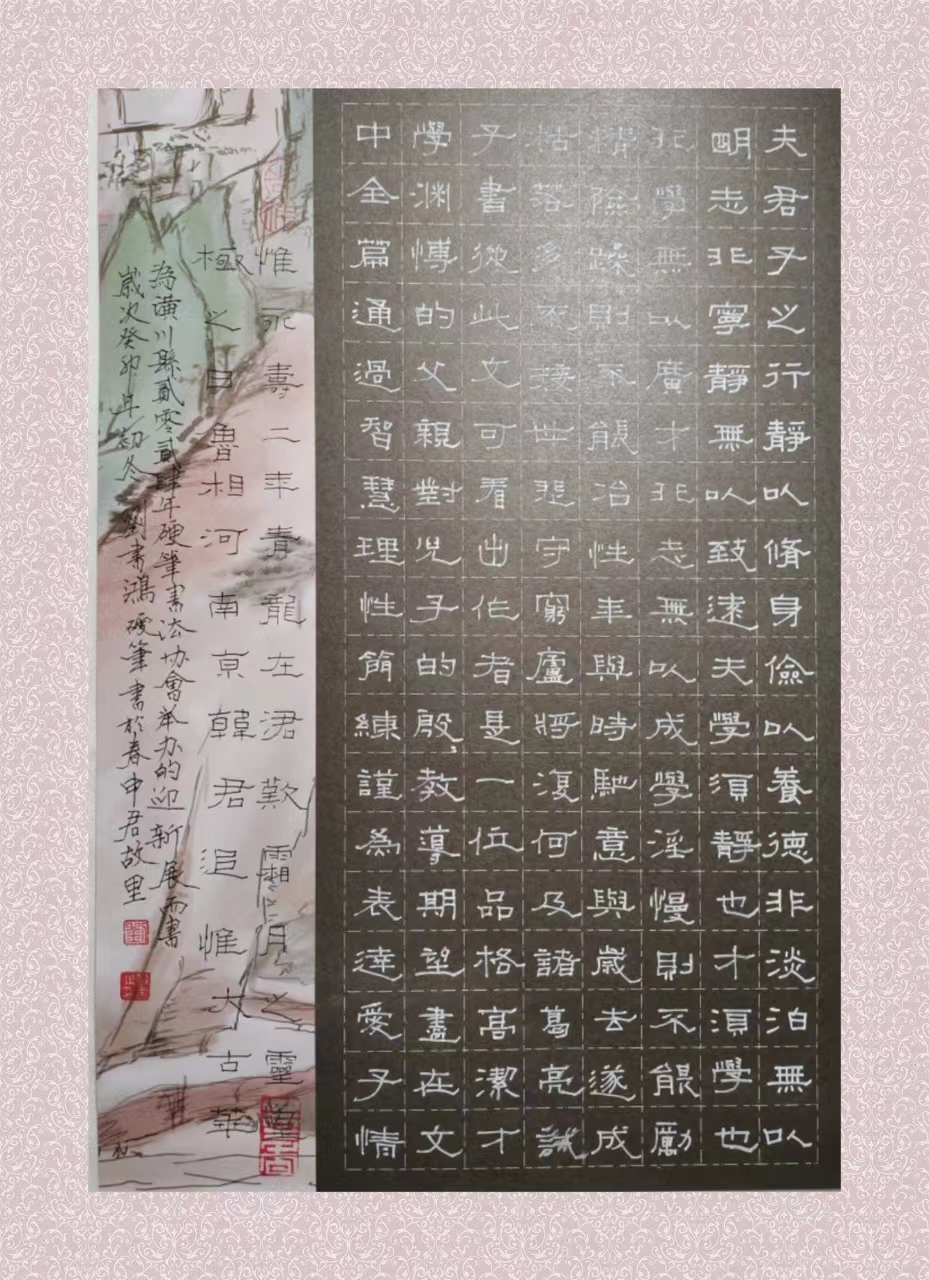 夫君子之行靜以脩身儉以養德非淡泊無以
明志非寧靜無以致遠夫學須靜也才須學也
非學無以廣才非志無以成學淫慢則不能勵
精險躁則不能冶性年與時馳意與歲去遂成
枯落多不接世悲守窮廬將復何及諸葛亮誡
子書從此文可看出作者是一位品格高潔才
學渊博的父親對兒子的殷〻教導期望盡在文
中全篇通過智慧理性簡練謹為表達愛子情
惟永壽二年青龍在涒歎霜月之靈皇
極之日魯相河南京韓君追惟大古華
為潢川縣貳零貳肆年硬筆書法协會举办的迎新展而書
歲次癸卯年初冬劉書鴻硬筆書於春申君故里